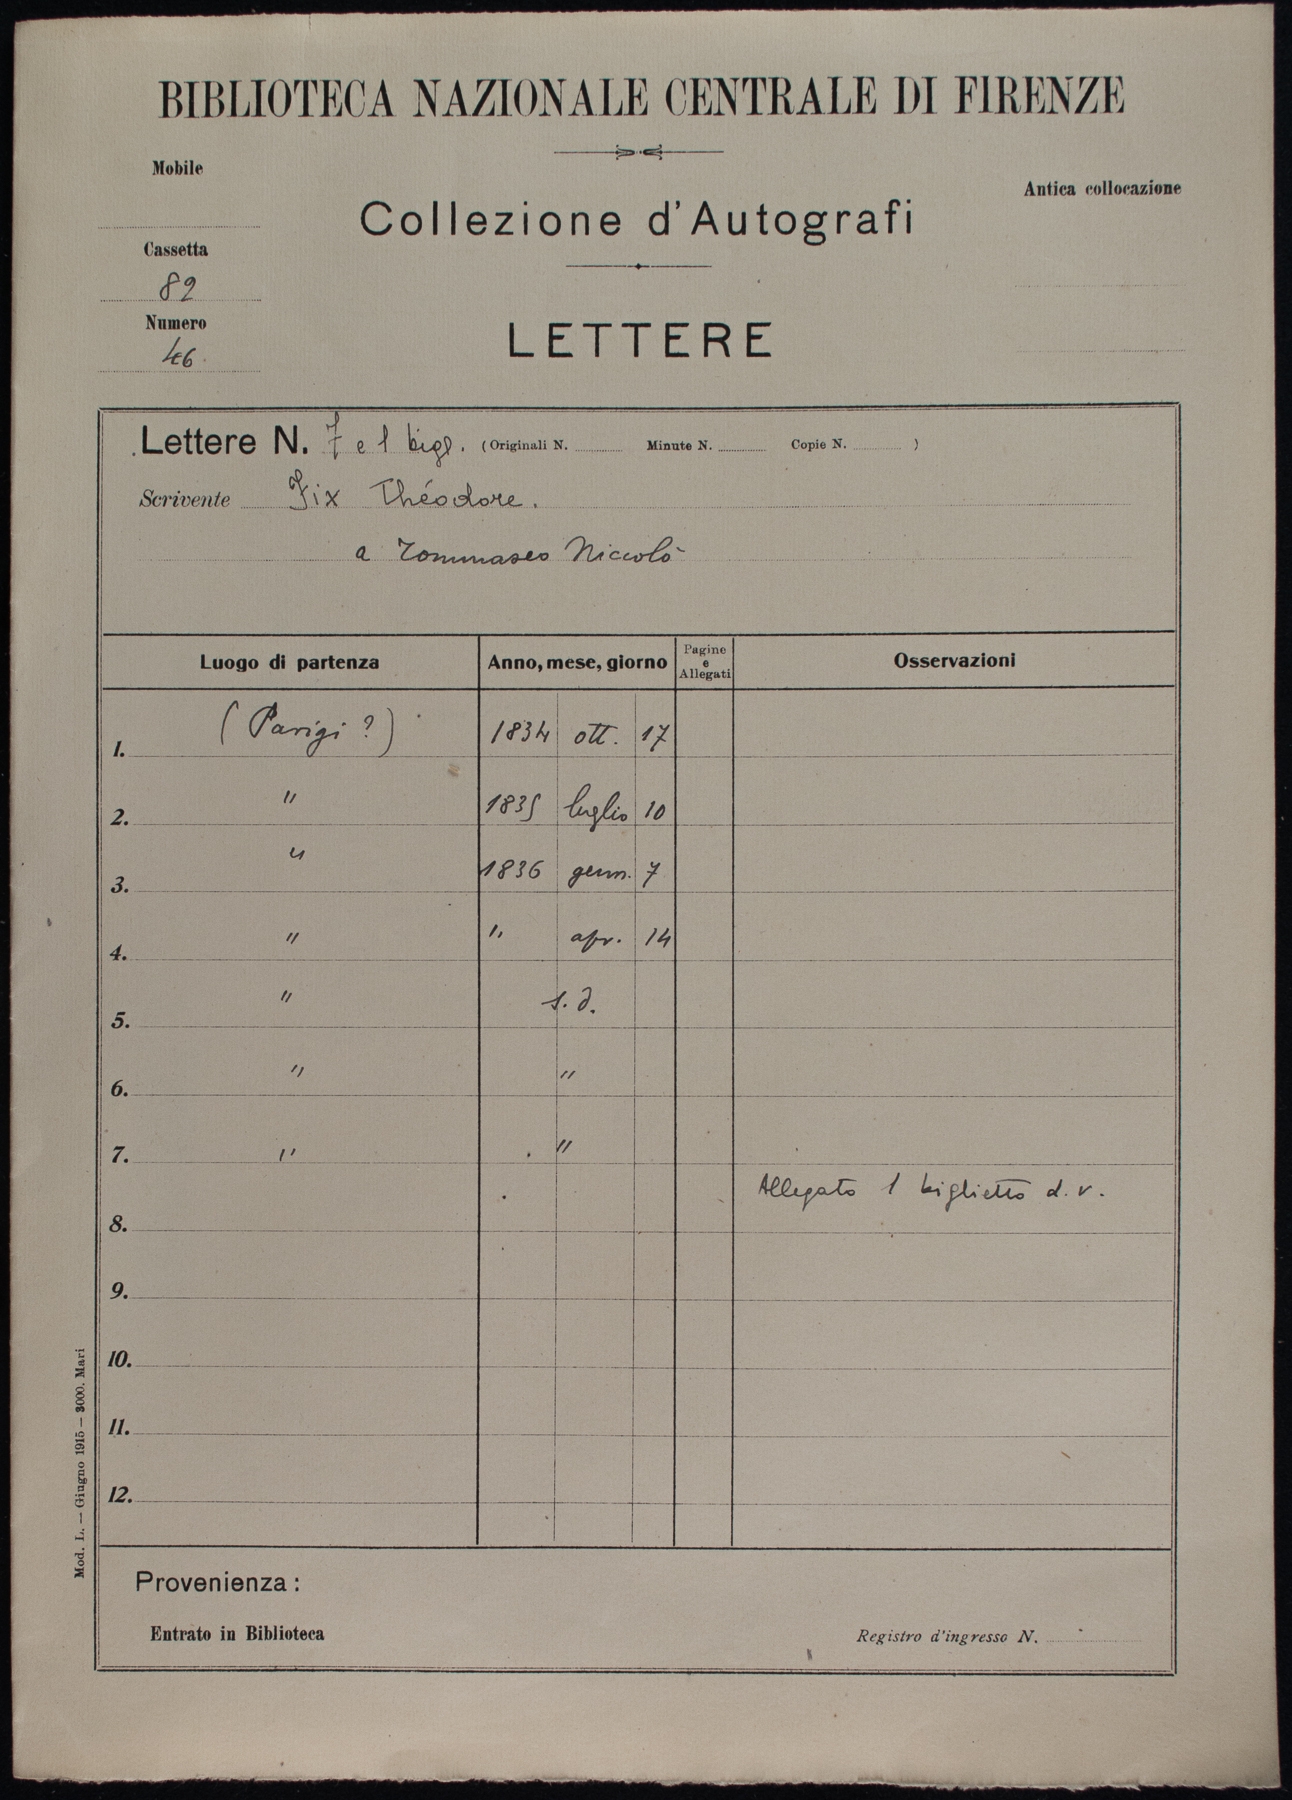 BIBLIOTECA NAZIONALE CENTRALE DI FIRENZE
Mobile
Antica collocazione
Collezione d'Autografi
Cassetta
82
Numero
46
LETTERE
Lettere N. 7 e 1 bigl. (Originali N. Minute N. Copie N. )
Scrivente Fix Théodore.
a Tommaseo Niccolò
Luogo di partenza Anno, mese, giorno Pagine e Allegati Osservazioni
1. (Parigi ?) 1834 ott. 17
2. " 1835 luglio 10
3. " 1836 genn. 7
4. " " apr. 14
5. " s.d.
6. " "
7. " "
Allegato 1 biglietto d.v.
8.
9.
10.
11.
12.
Provenienza:
Entrato in Biblioteca
Registro d'ingresso N.
Mod. L. — Giugno 1915 — 3000. Mari